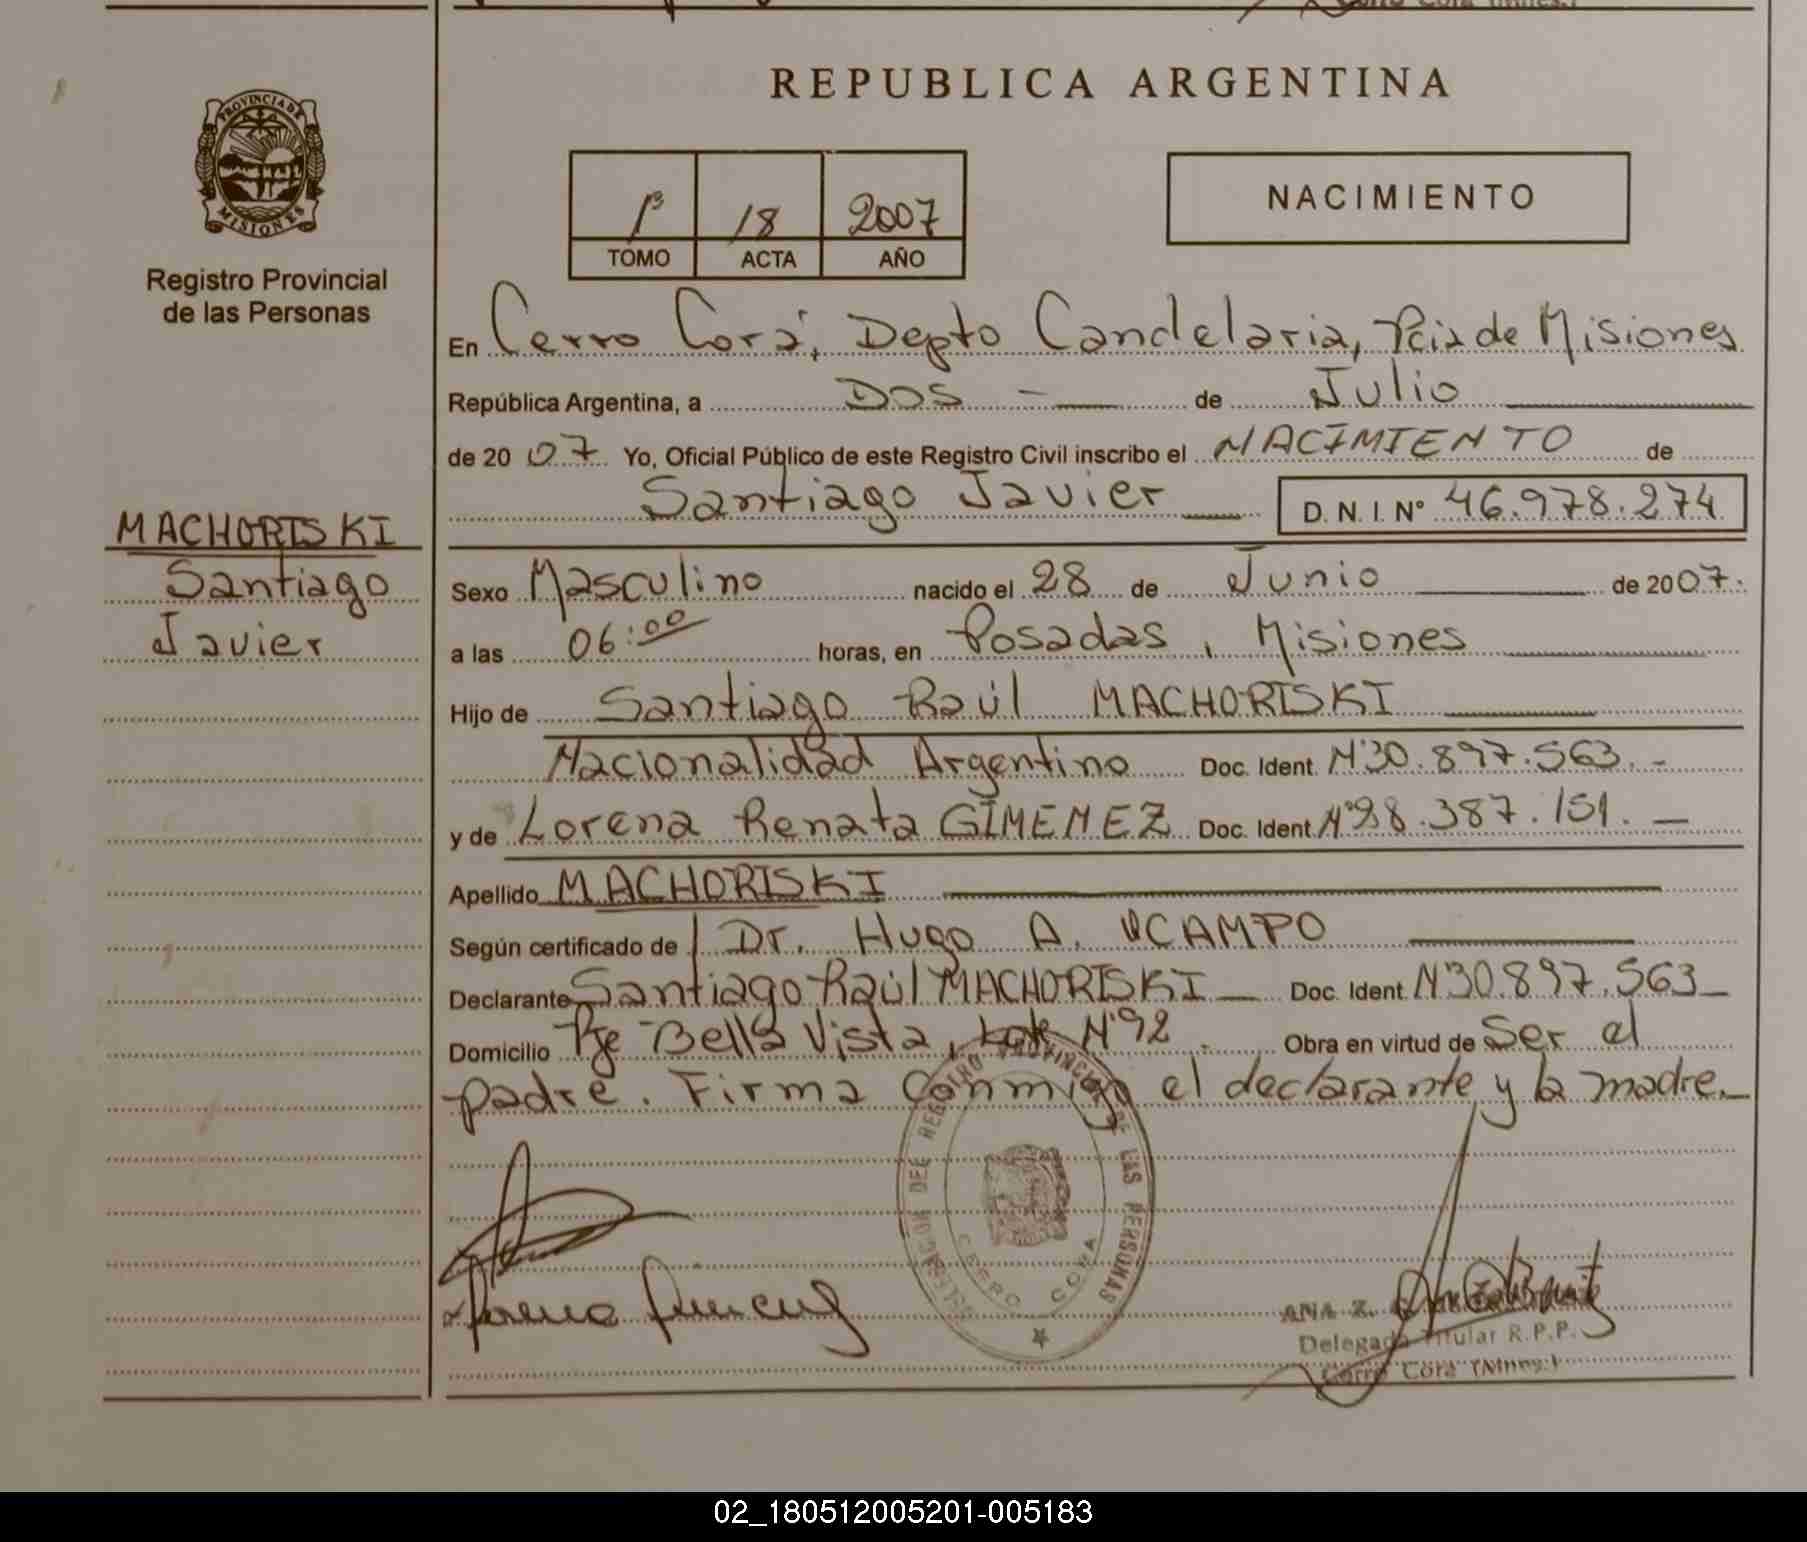 REPUBLICA ARGENTINA
PROVINCIA DE
MISIONES
Registro Provincial
de las Personas
18 2007
TOMO ACTA AÑO
NACIMIENTO
En Cerro Corá, Depto Candelaria, Pcia de Misiones
República Argentina, a DOS — de Julio
de 2007 Yo, Oficial Público de este Registro Civil inscribo el NACIMIENTO de
Santiago Javier D. N. I. Nº 46.978.274
MACHORISKI
Santiago
Javier
Sexo Masculino nacido el 28 de Junio de 2007.
a las 06:00 horas, en Posadas, Misiones
Hijo de Santiago Raúl MACHORISKI
Nacionalidad Argentino Doc. Ident. Nº30.897.563.-
y de Lorena Renata GIMENEZ Doc. Ident. Nº 387.151. —
Apellido MACHORISKI
Según certificado de Dr. Hugo A. OCAMPO
Declarante Santiago Raúl MACHORISKI — Doc. Ident. Nº30.897.563_
Domicilio Pje Bella Vista, Nº92. Obra en virtud de Ser el
padre. Firma Conmigo el declarante y la madre._
REGISTRO PROVINCIAL DE LAS PERSONAS
CERRO CORA
ANA Z.
Delegada Titular R.P.P.
Cerro Cora (Mnes.)
02_180512005201-005183